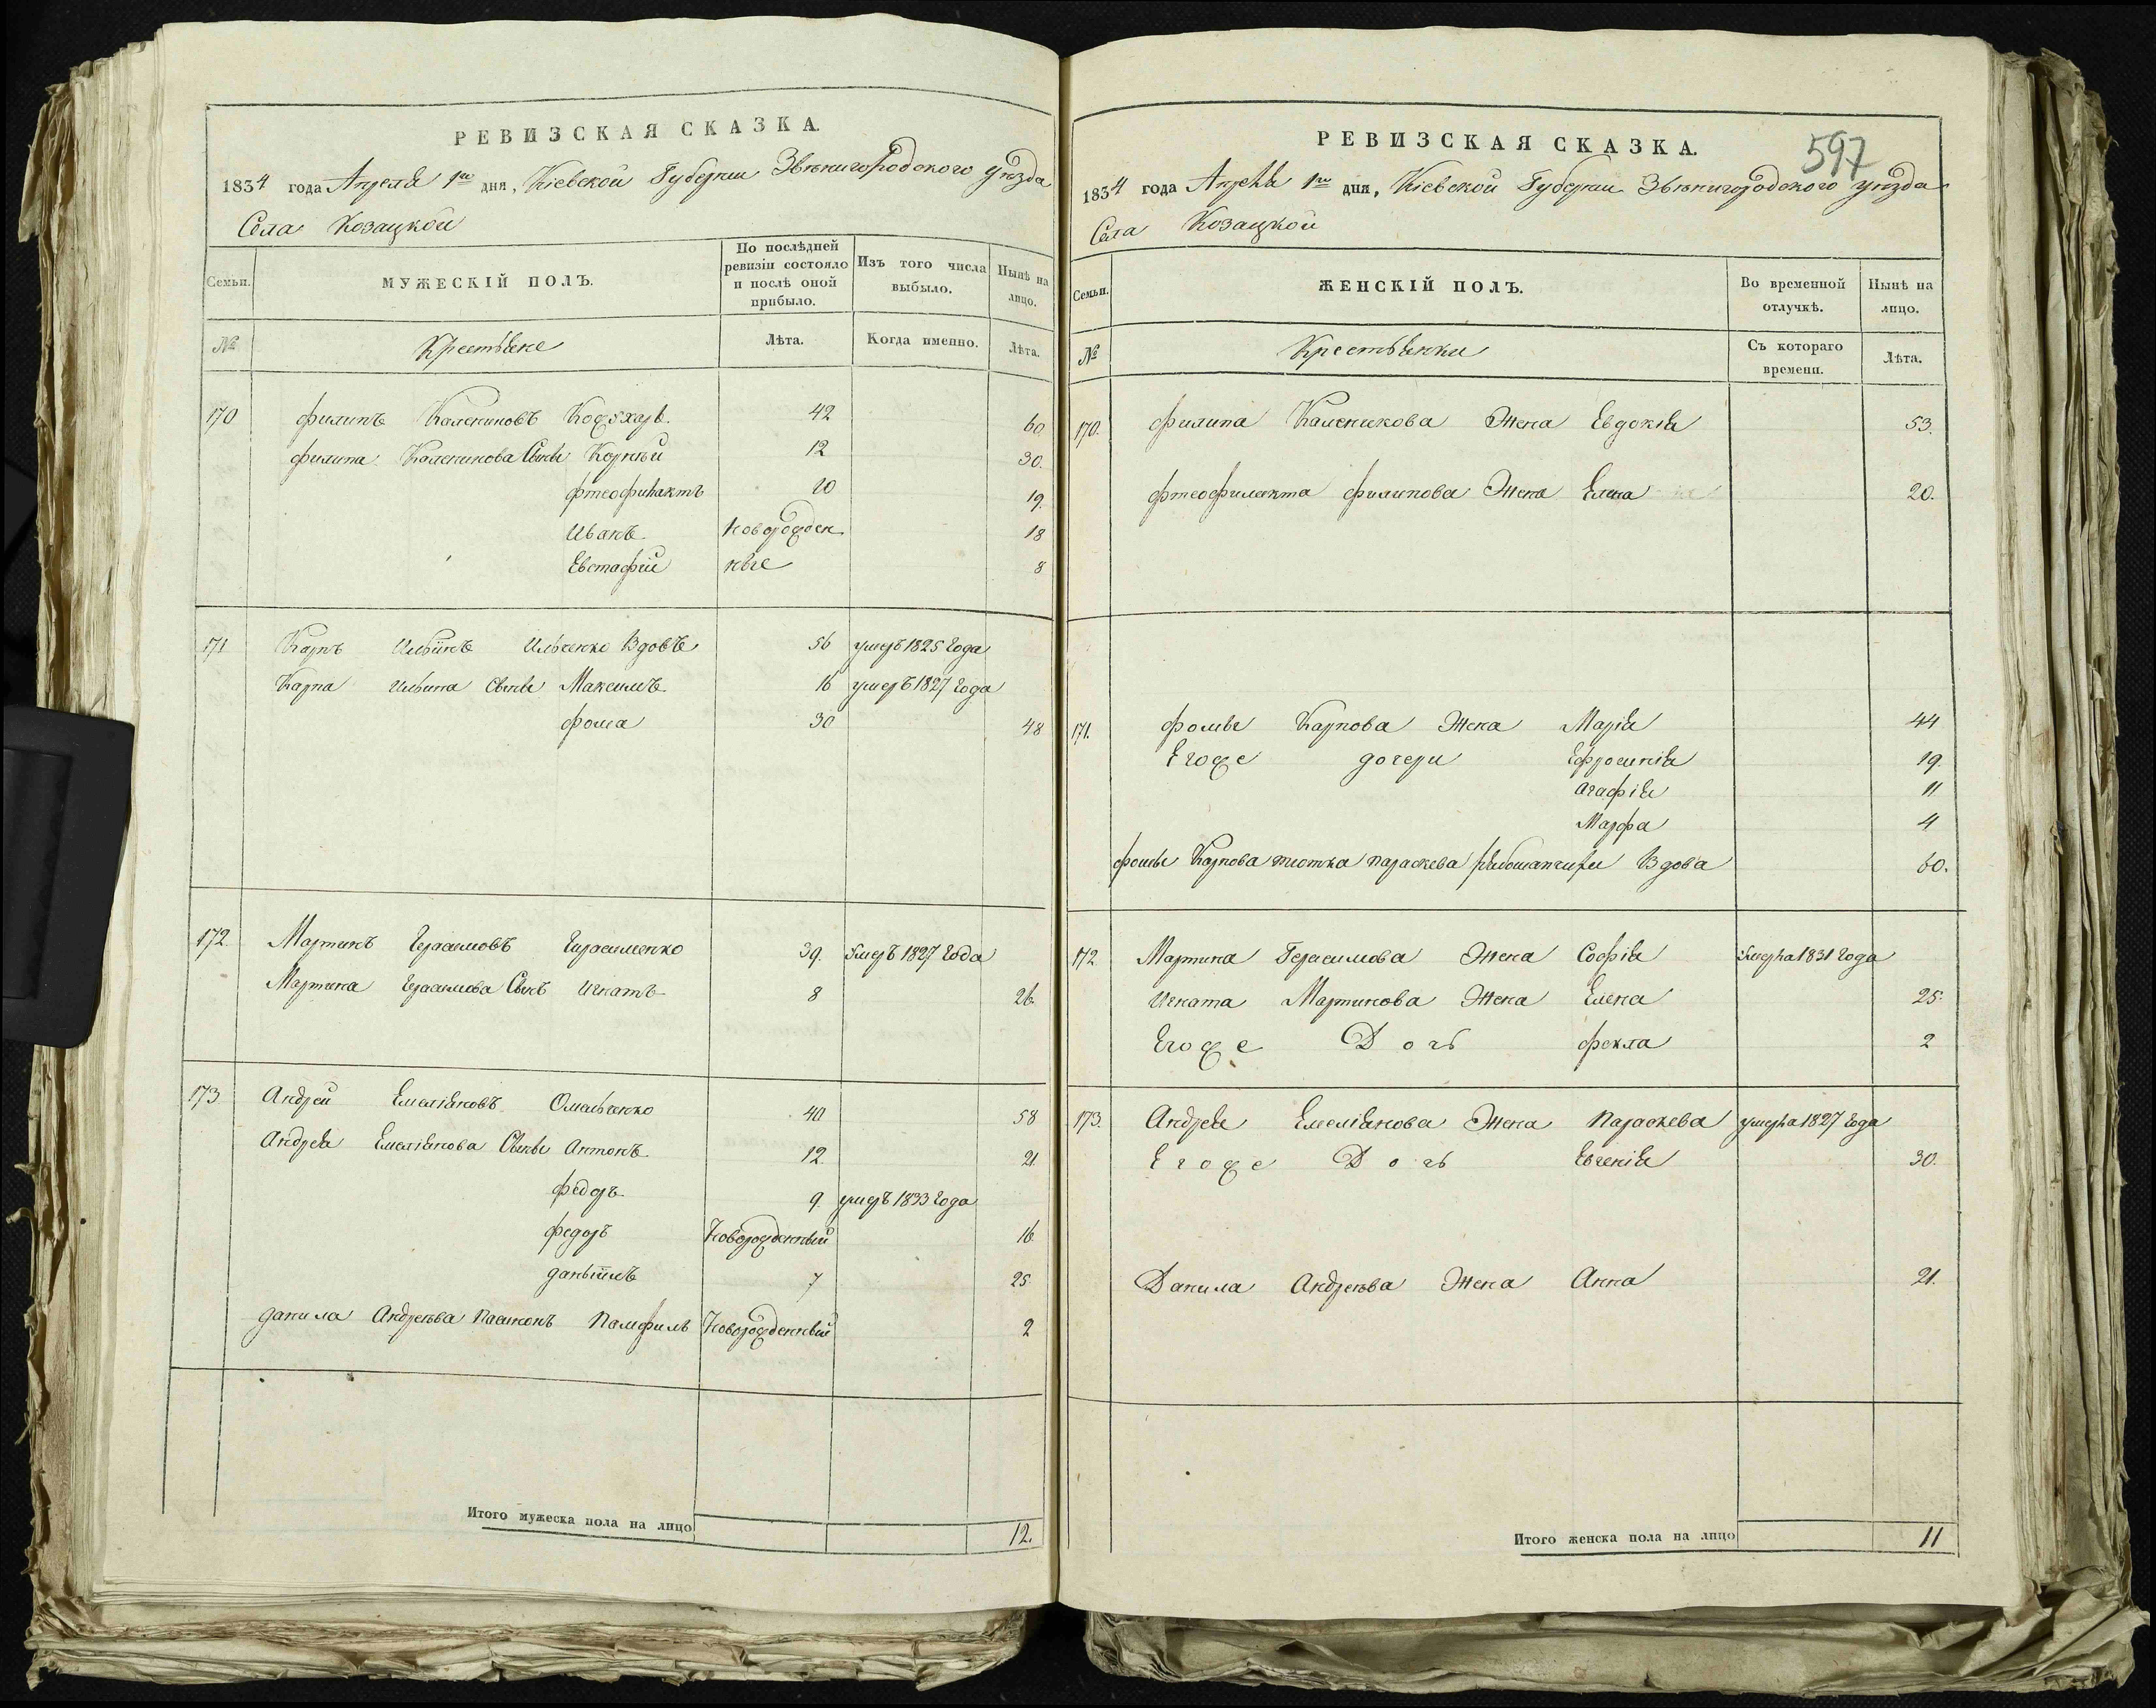 РЕВИЗСКАЯ СКАЗКА.
1834 года Апреля 1го дня, Кіевской Губернии Звѣнигородского уѣзда
Села Козацкой
Семьи.
МУЖЕСКІЙ ПОЛЪ.
По послѣдней ревизіи состояло и послѣ оной прибыло.
Изъ того числа выбыло.
Нынѣ на лицо.
№
Крестьяне
Лѣта.
Когда именно.
Лѣта.
170 филипъ Калениковъ Кожухарь 42 60
филипа Каленикова Сыны Корнѣй 12 30.
фтеофилактъ 20 19.
Иванъ новорожден 18
Евстафій ные 8
171 Карпъ Ильинъ Ильченко Вдовъ 56 умеръ 1825 года
Карпа Ильина Сыны Максимъ 16 умеръ 1827 года
фома 30 48
172. Мартинъ Герасимовъ Герасименко 39. Умеръ 1827 Года
Мартина Герасимова Сынъ Игнатъ 8 26.
173 Андрей Емеліяновъ Омельченко 40 58
Андрея Емеліянова Сыны Антонъ 12. 21.
федоръ 9. умеръ 1833 Года
федоръ Новорожденный 16
даныилъ 7 25
данила Андреѣва Памфилъ Новорожденный 2
Итого мужеска пола на лицо 12.
РЕВИЗСКАЯ СКАЗКА.
597
1834 года Апреля 1го дня, Кіевской Губернии Звѣнигородского уѣзда
Села Козацкой
Семьи.
ЖЕНСКІЙ ПОЛЪ.
Во временной отлучкѣ.
Нынѣ на лицо.
№
Крестьянки
Съ котораго времени.
Лѣта.
170. филипа Каленикова Жена Евдокія 53.
фтеофилакта филипова Жена Елена 20.
171. фомы Карпова Жена Марія 44
Егоже дочери Ефросинія 19.
агафія 11
Марфа 4
фомы Карпова тіотка параскева Вдова 60.
172 Мартина Герасимова Жена Софія Умерла 1831 Года
Игната Мартинова Жена Елена 25.
Егоже Дочь фекла 2
173. Андрея Емеліянова Жена параскева умерла 1827 Года
Егоже Дочь Евгенія 30.
Данила Андреѣва Жена Анна 21.
Итого женска пола на лицо 11